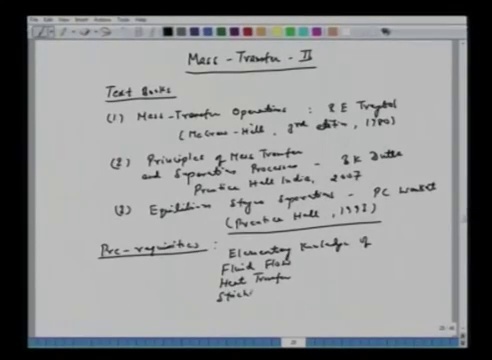 Mass - Transfer - II
Text Books
(1) Mass-Transfer Operations : R E Treybal
(McGraw-Hill, 3rd edition, 1980)
(2) Principles of Mass Transfer
and Separation Processes - B K Dutta
Prentice Hall India, 2007
(3) Equilibrium Stage Separations - PC Wankat
(Prentice Hall, 1993)
Pre-requisites : Elementary Knowledge of
Fluid Flow
Heat Transfer
Stichi